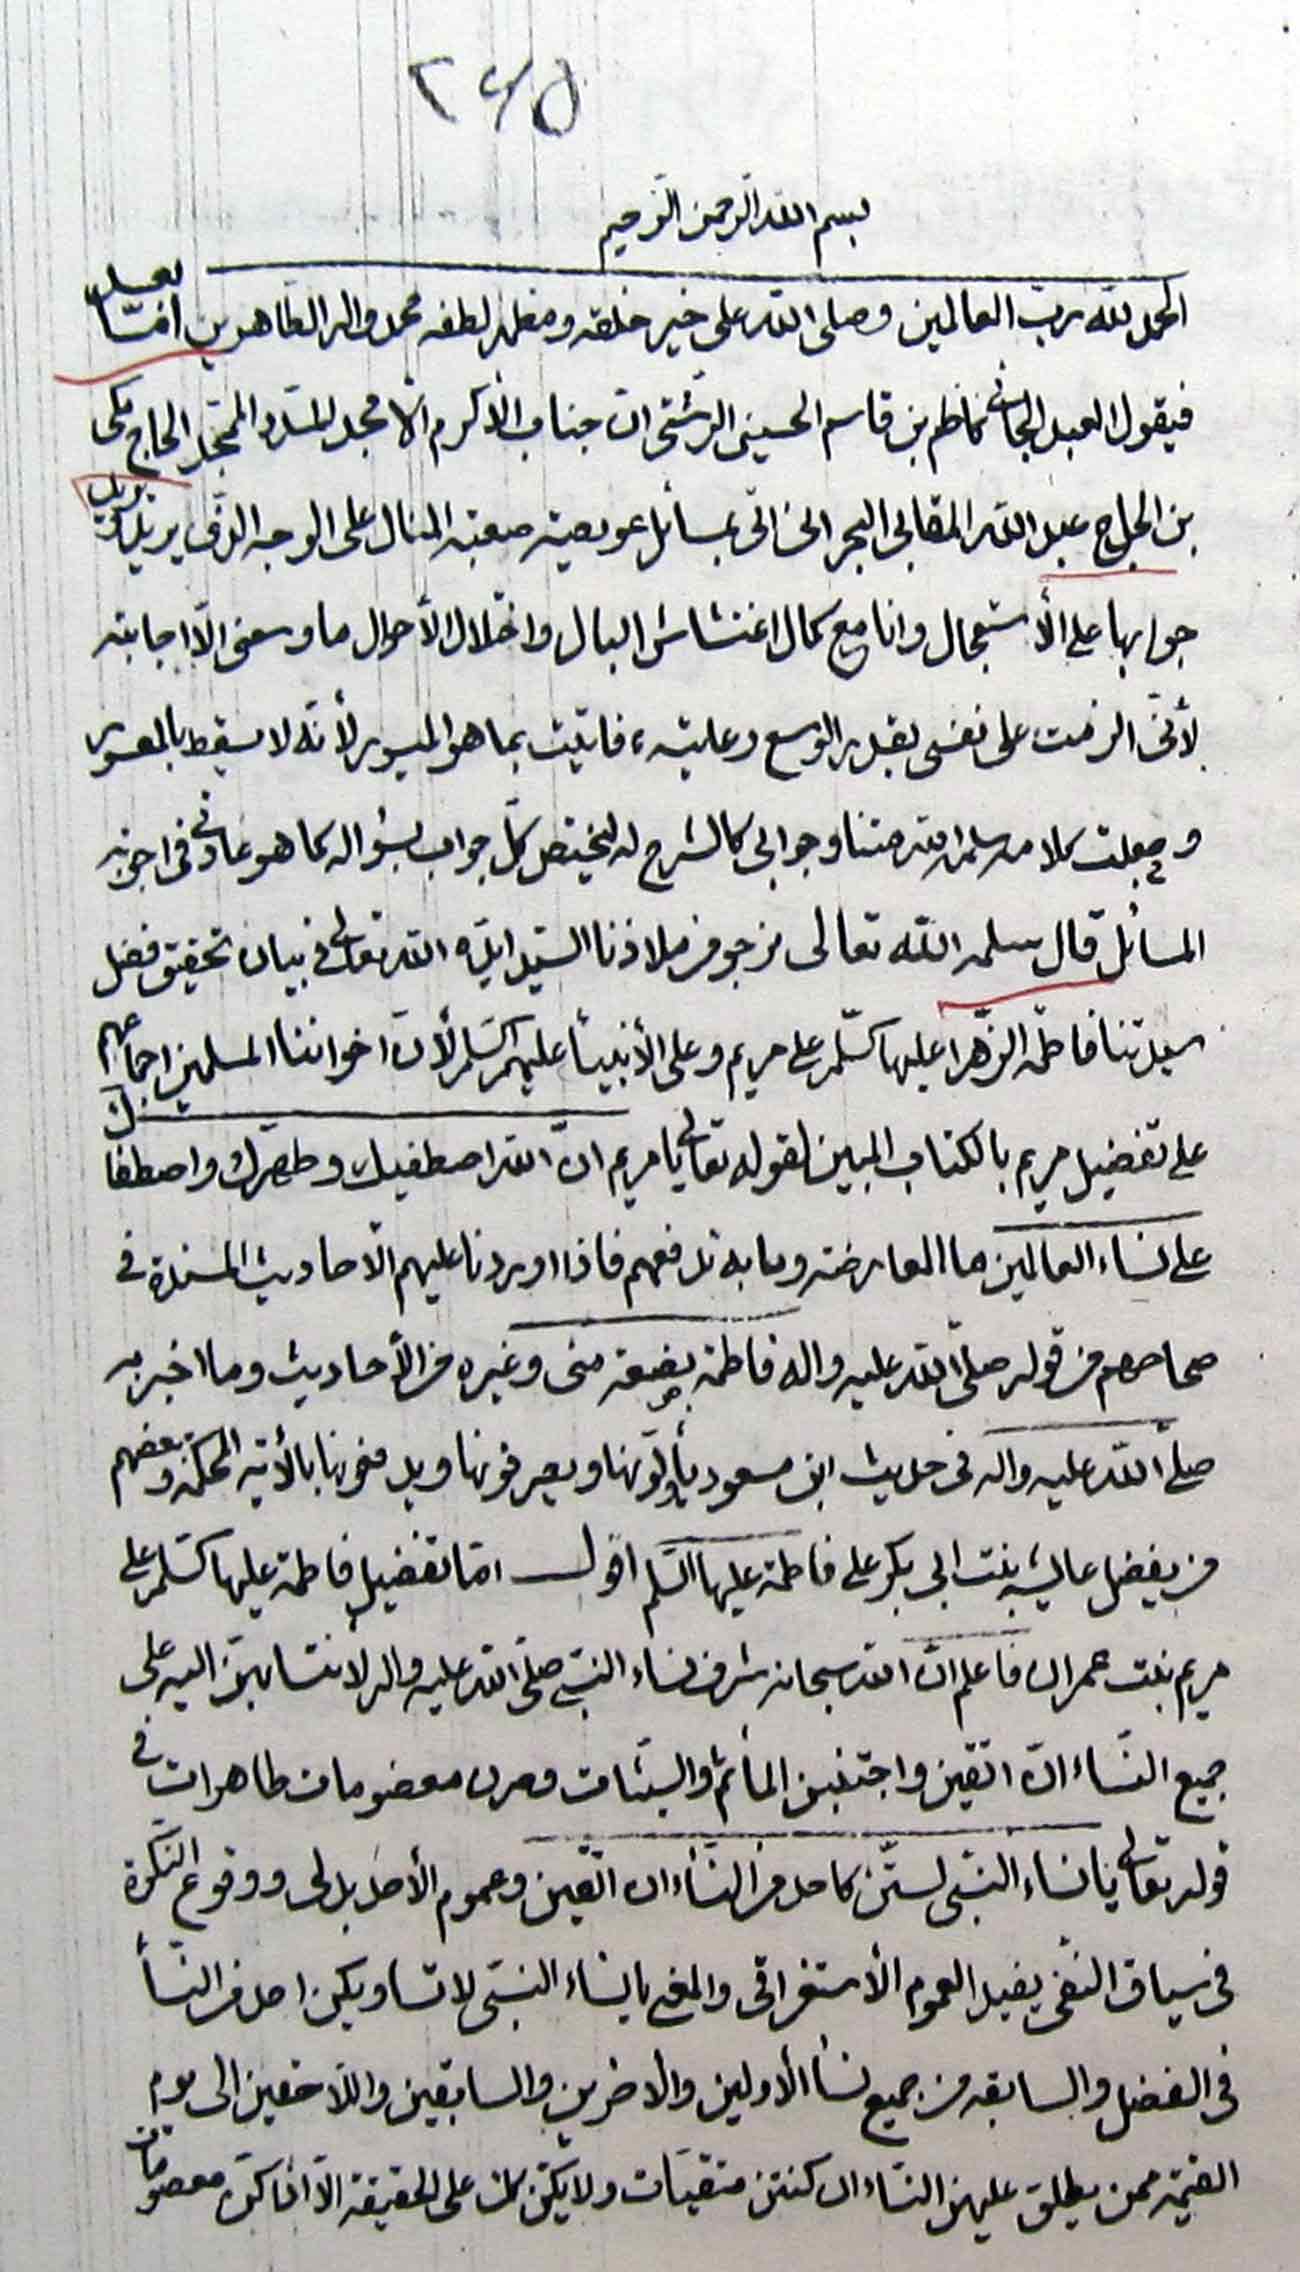 ٢٤٥
بسم الله الرحمن الرحيم
الحمد لله رب العالمين وصلى الله على خير خلقه ومظهر لطفه محمد واله الطاهرين امّا بعد
فيقول العبد الجانى كاظم بن قاسم الحسينى الرشتى ان جناب الأكرم الأمجد المسدد الحاج مكى
بن الحاج عبد الله المقابى البحرانى اتى بمسائل عويصة صعبة المنال على الوجه الذى يريد ويريد
جوابها على الأستعجال وانا مع كمال اغتشاش البال واختلال الأحوال ما وسعنى الّا اجابته
لأنّى الزمت على نفسى بقدر الوسع رعايته، فاتيت بما هو الميسور لأنّه لا يسقط بالمعسور
وجعلت كلامه سلمه الله متنا وجوابى كالشرح له ليختص كلّ جواب بسؤاله كما هو عادتى فى اجوبة
المسائل قال سلمه الله تعالى نرجو من ملاذنا السيد ايّده الله تعالى فى بيان تحقيق فضل
سيدتنا فاطمة الزّهرا عليها السّلم على مريم وعلى الأنبيأ عليهم السّلم لأنّ اخواننا المسلمين اجماعهم
على تفضيل مريم بالكتاب المبين لقوله تعالى يا مريم انّ الله اصطفيك وطهّرك واصطفاك
على نساء العالمين ما المعارضة وما به ندفعهم فاذا اوردنا عليهم الّاحاديث المسندة فى
صحاحهم من قوله صلّى الله عليه واله فاطمة بضعة منى وغيره من الأحاديث وما اخبر به
صلّى الله عليه واله فى حديث ابن مسعود يأوّلونها ويصرفونها ويدفعونها بالأية المحكمة وبعضهم
من يفضل عايشه بنت ابى بكر على فاطمة عليها السّلم اقول امّا تفضيل فاطمة عليها السّلم على
مريم بنت عمران فاعلم انّ الله سبحانه شرف نساء النبىّ صلّى الله عليه واله لانتسابهنّ اليه على
جميع النّساء ان اتّقين واجتنبن المأثم والسيّئات وصرن معصومات طاهرات فى
قوله تعالى يا نساء النبىّ لستنّ كاحد من النّسأ ان اتّقين وعموم الأحد بدلى ووقوع النّكرة
فى سياق النّفى يفيد العموم الأستغراقى والمعنى يا نساء النبىّ لا تساويكن احد من النسّأ
فى الفضل والسابقه من جميع نسأ الأولين والاخرين والسابقين واللاحقين الى يوم
القيمة ممن يطلق عليهن النّساء ان كنتن متقيات ولا يكنّ كذلك على الحقيقة الّا اذا كنّ معصومات